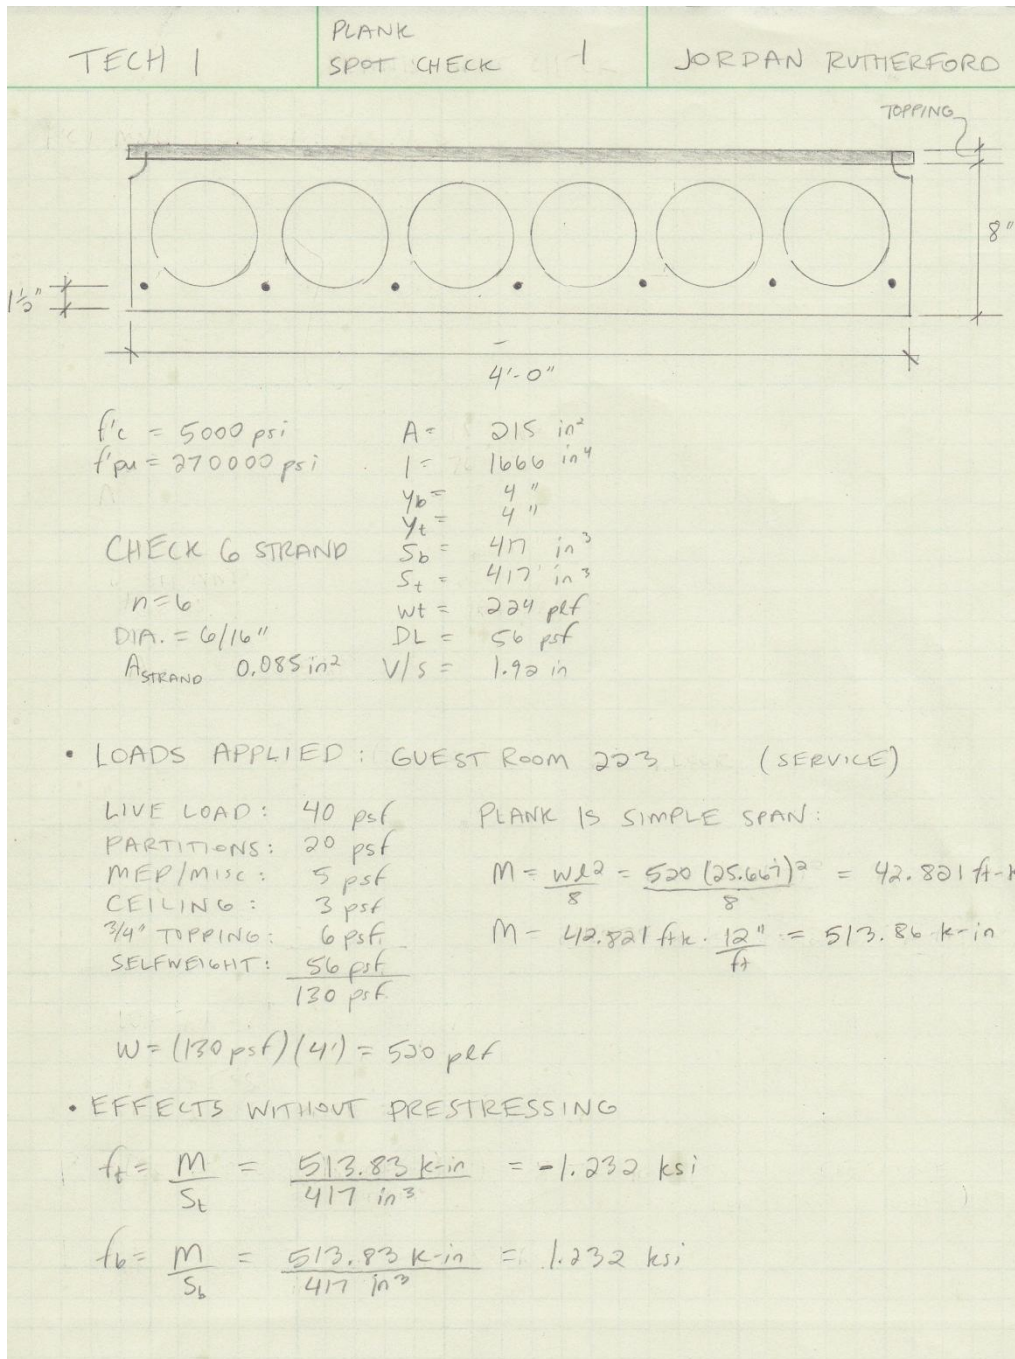 TECH 1
PLANK
SPOT CHECK 1
JORDAN RUTHERFORD
TOPPING
8"
1½"
4'-0"
f'c = 5000 psi
f'pu = 270000 psi
CHECK 6 STRAND
n=6
DIA. = 6/16"
ASTRAND 0.085 in²
A = 215 in²
I = 1666 in⁴
yb = 4"
yt = 4"
Sb = 417 in³
St = 417 in³
wt = 224 plf
DL = 56 psf
V/S = 1.92 in
• LOADS APPLIED: GUEST ROOM 223 (SERVICE)
LIVE LOAD: 40 psf
PARTITIONS: 20 psf
MEP/MISC: 5 psf
CEILING: 3 psf
3/4" TOPPING: 6 psf
SELFWEIGHT: 56 psf
130 psf
W = (130 psf)(4') = 520 plf
PLANK IS SIMPLE SPAN:
M = wl²/8 = 520 (25.667)²/8 = 42.821 ft-k
M = 42.821 ftk · 12"/ft = 513.86 k-in
• EFFECTS WITHOUT PRESTRESSING
ft = M/St = 513.83 k-in/417 in³ = -1.232 ksi
fb = M/Sb = 513.83 k-in/417 in³ = 1.232 ksi